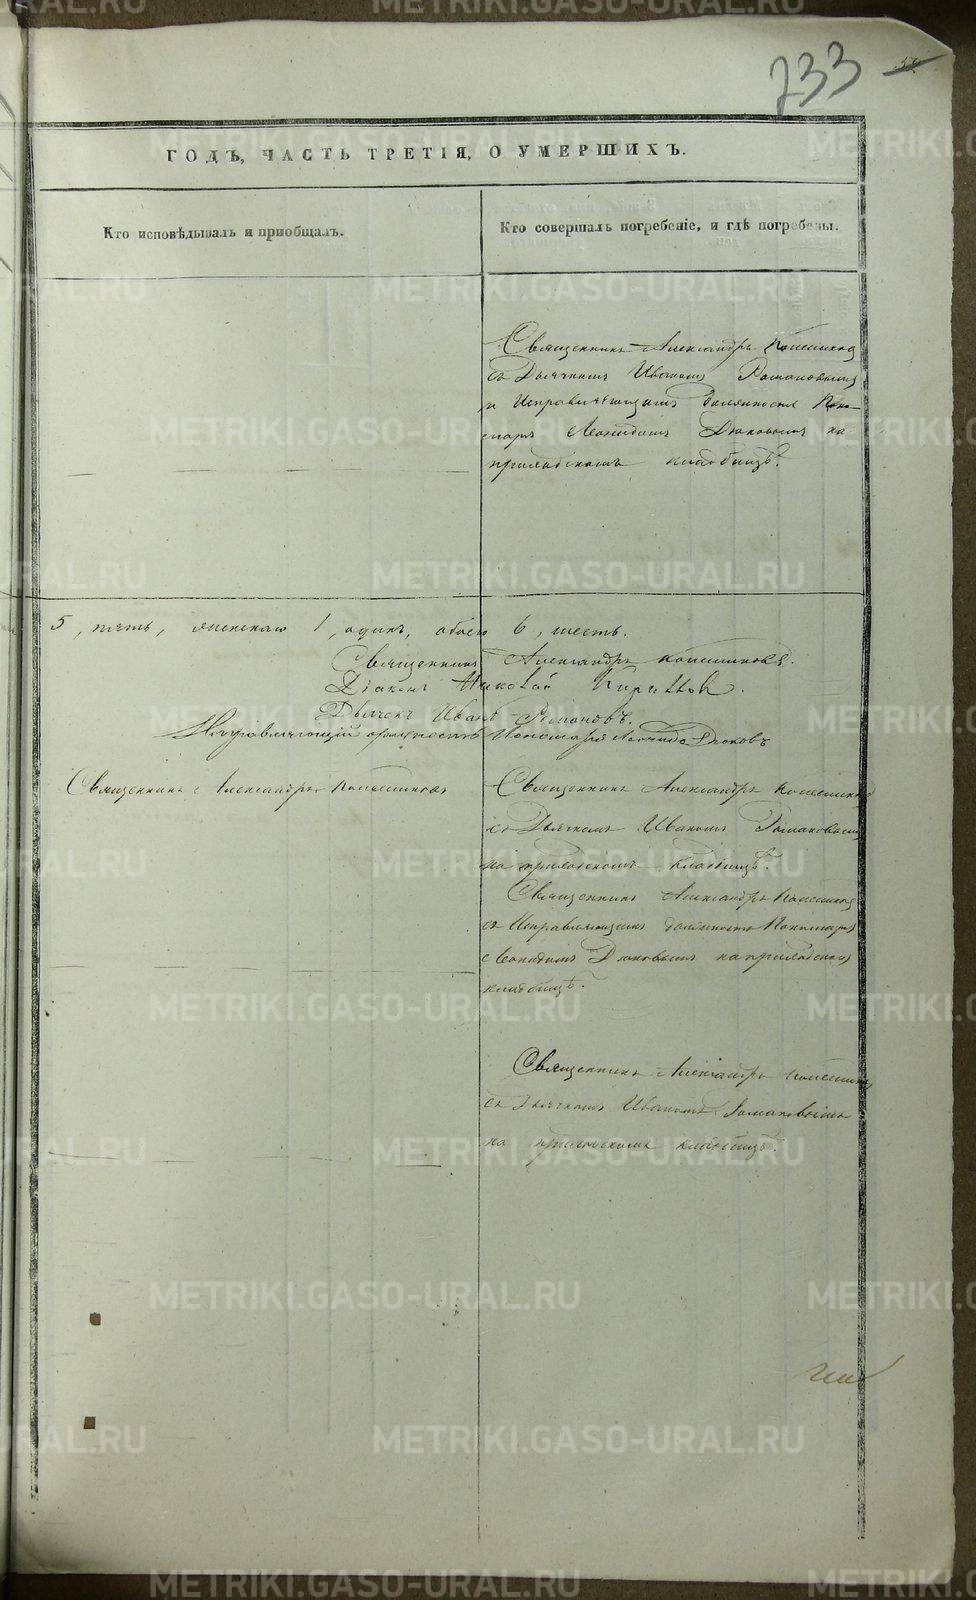 733
ГОДЪ, ЧАСТЬ ТРЕТІЯ, О УМЕРШИХЪ.
Кто исповѣдывалъ и пріобщалъ.
Кто совершалъ погребеніе, и гдѣ погребены.
Священникъ Александръ
съ Дьячкомъ Иваномъ Романовымъ
и Исправляющимъ должность Поно-
маря Леонидомъ Дюковымъ на
приходскомъ кладбищѣ.
5, пять, женскаго 1, одинъ, обоего 6, шесть.
Священникъ Александръ
Діаконъ Николай
Дьячекъ Иванъ Романовъ.
Исправляющій должность Пономаря Леонидъ Дюковъ
Священникъ Александръ
Священникъ Александръ
съ Дьячкомъ Иваномъ Романовымъ
на приходскомъ кладбищѣ.
Священникъ Александръ
съ Исправляющимъ должность Пономаря
Леонидомъ Дюковымъ на приходскомъ
кладбищѣ.
Священникъ Александръ
съ Дьячкомъ Иваномъ Романовымъ
на приходскомъ кладбищѣ.
METRIKI.GASO-URAL.RU